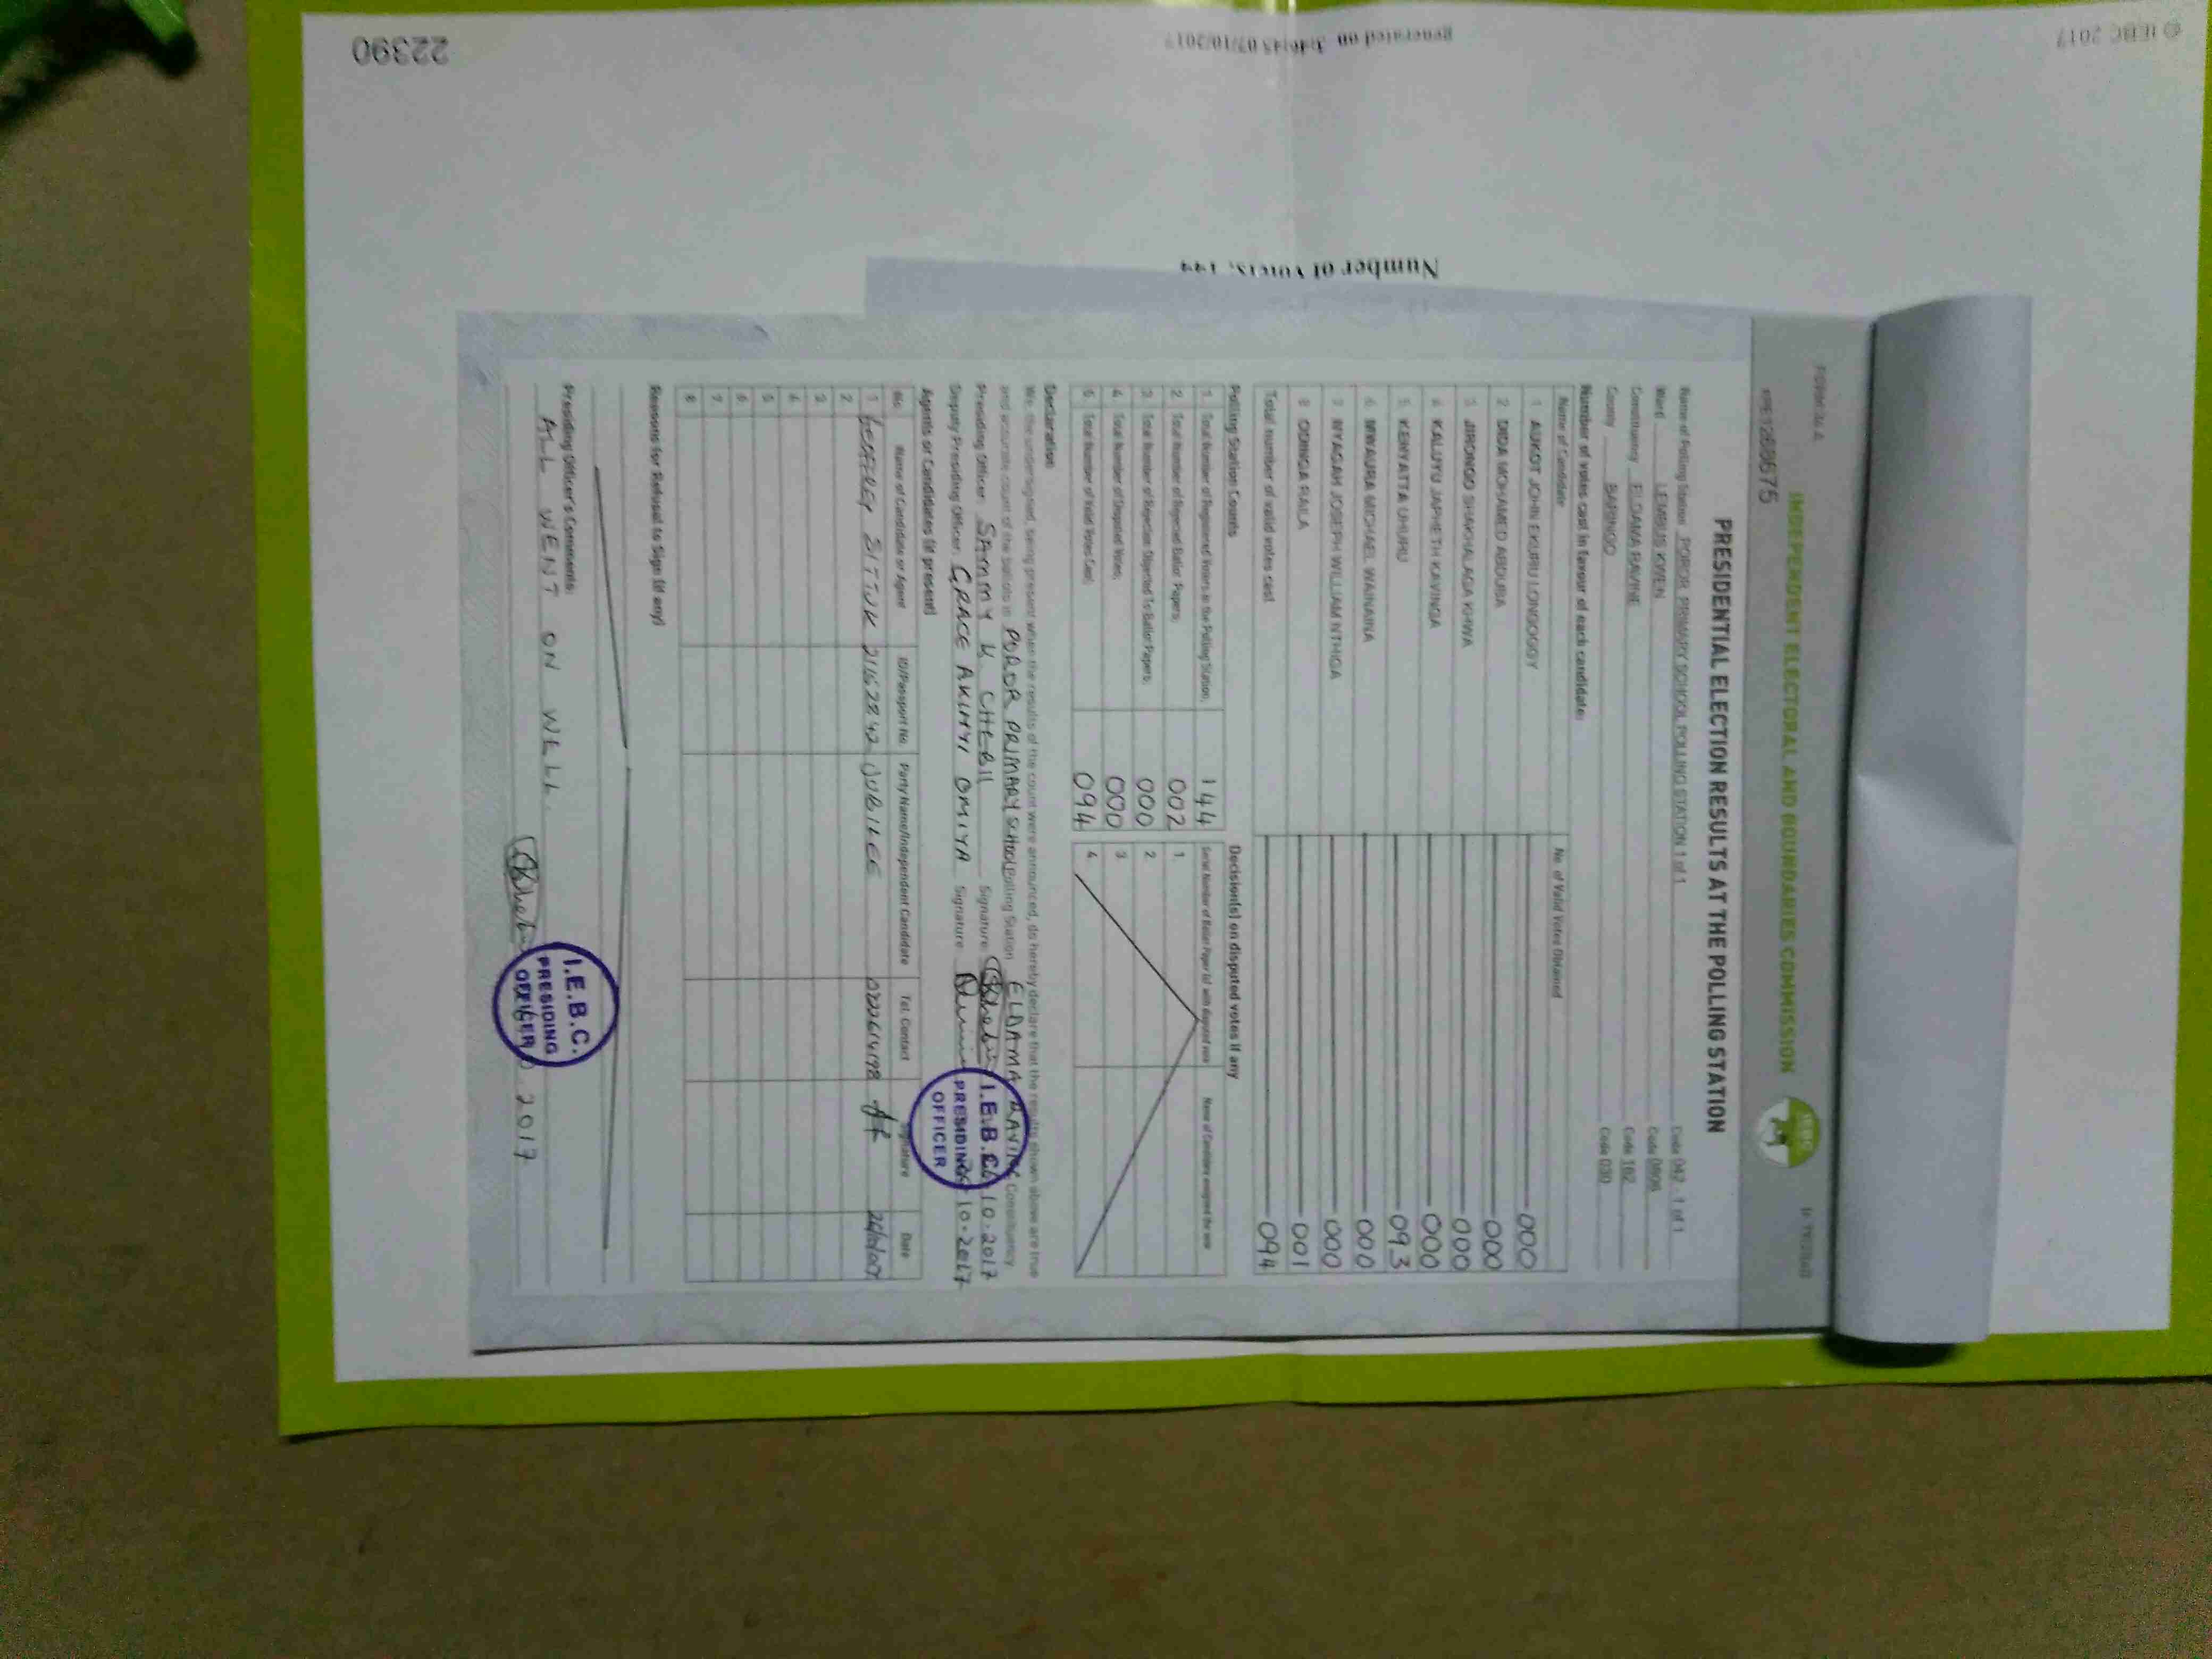 FORM 34 A
INDEPENDENT ELECTORAL AND BOUNDARIES COMMISSION
PRESIDENTIAL ELECTION RESULTS AT THE POLLING STATION
Name of Polling Station POROR PRIMARY SCHOOL POLLING STATION 1 of 1 Code 042 - 1 of 1
Ward LEMBUS KWEN Code
Constituency ELDAMA RAVINE Code 162
County BARINGO Code 030
Number of votes cast in favour of each candidate:
Name of Candidate No. of Valid Votes Obtained
1 AUKOT JOHN EKURU LONGOGGY 000
2 DIDA MOHAMED ABDUBA 000
3 JIRONGO SHAKHALAGA KHWA 000
4 KALUYU JAPHETH KAVINGA 000
5 KENYATTA UHURU 093
6 MWAURA MICHAEL WAINAINA 000
7 NYAGAH JOSEPH WILLIAM NTHIGA 000
8 ODINGA RAILA 001
Total number of valid votes cast 094
Polling Station Counts
1 Total Number of Registered Voters in the Polling Station; 144
2 Total Number of Rejected Ballot Papers; 002
3 Total Number of Rejection Objected To Ballot Papers; 000
4 Total Number of Disputed Votes; 000
5 Total Number of Valid Votes Cast; 094
Decision(s) on disputed votes if any
1
2
3
4
Declaration
We, the undersigned, being present when the results of the count were announced, do hereby declare that the results shown above are true
and accurate count of the ballots in POROR PRIMARY SCHOOL Polling Station ELDAMA RAVINE Constituency.
Presiding Officer SAMMY K CHEBII Signature 10.2017
Deputy Presiding Officer: GRACE AKINYI OMIYA Signature 10.2017
I.E.B.C.
PRESIDING
OFFICER
Agents or Candidates (if present)
No. Name of Candidate or Agent ID/Passport No Party Name/Independent Candidate Tel. Contact Signature Date
1 21162842 JUBILEE
2
3
4
5
6
7
8
Reasons for Refusal to Sign (if any)
Presiding Officer's Comments:
ALL WENT ON WELL.
I.E.B.C.
PRESIDING
OFFICER
2017
Number of Voters: 144
© IEBC 2017
generated on 07/10/2017
22390